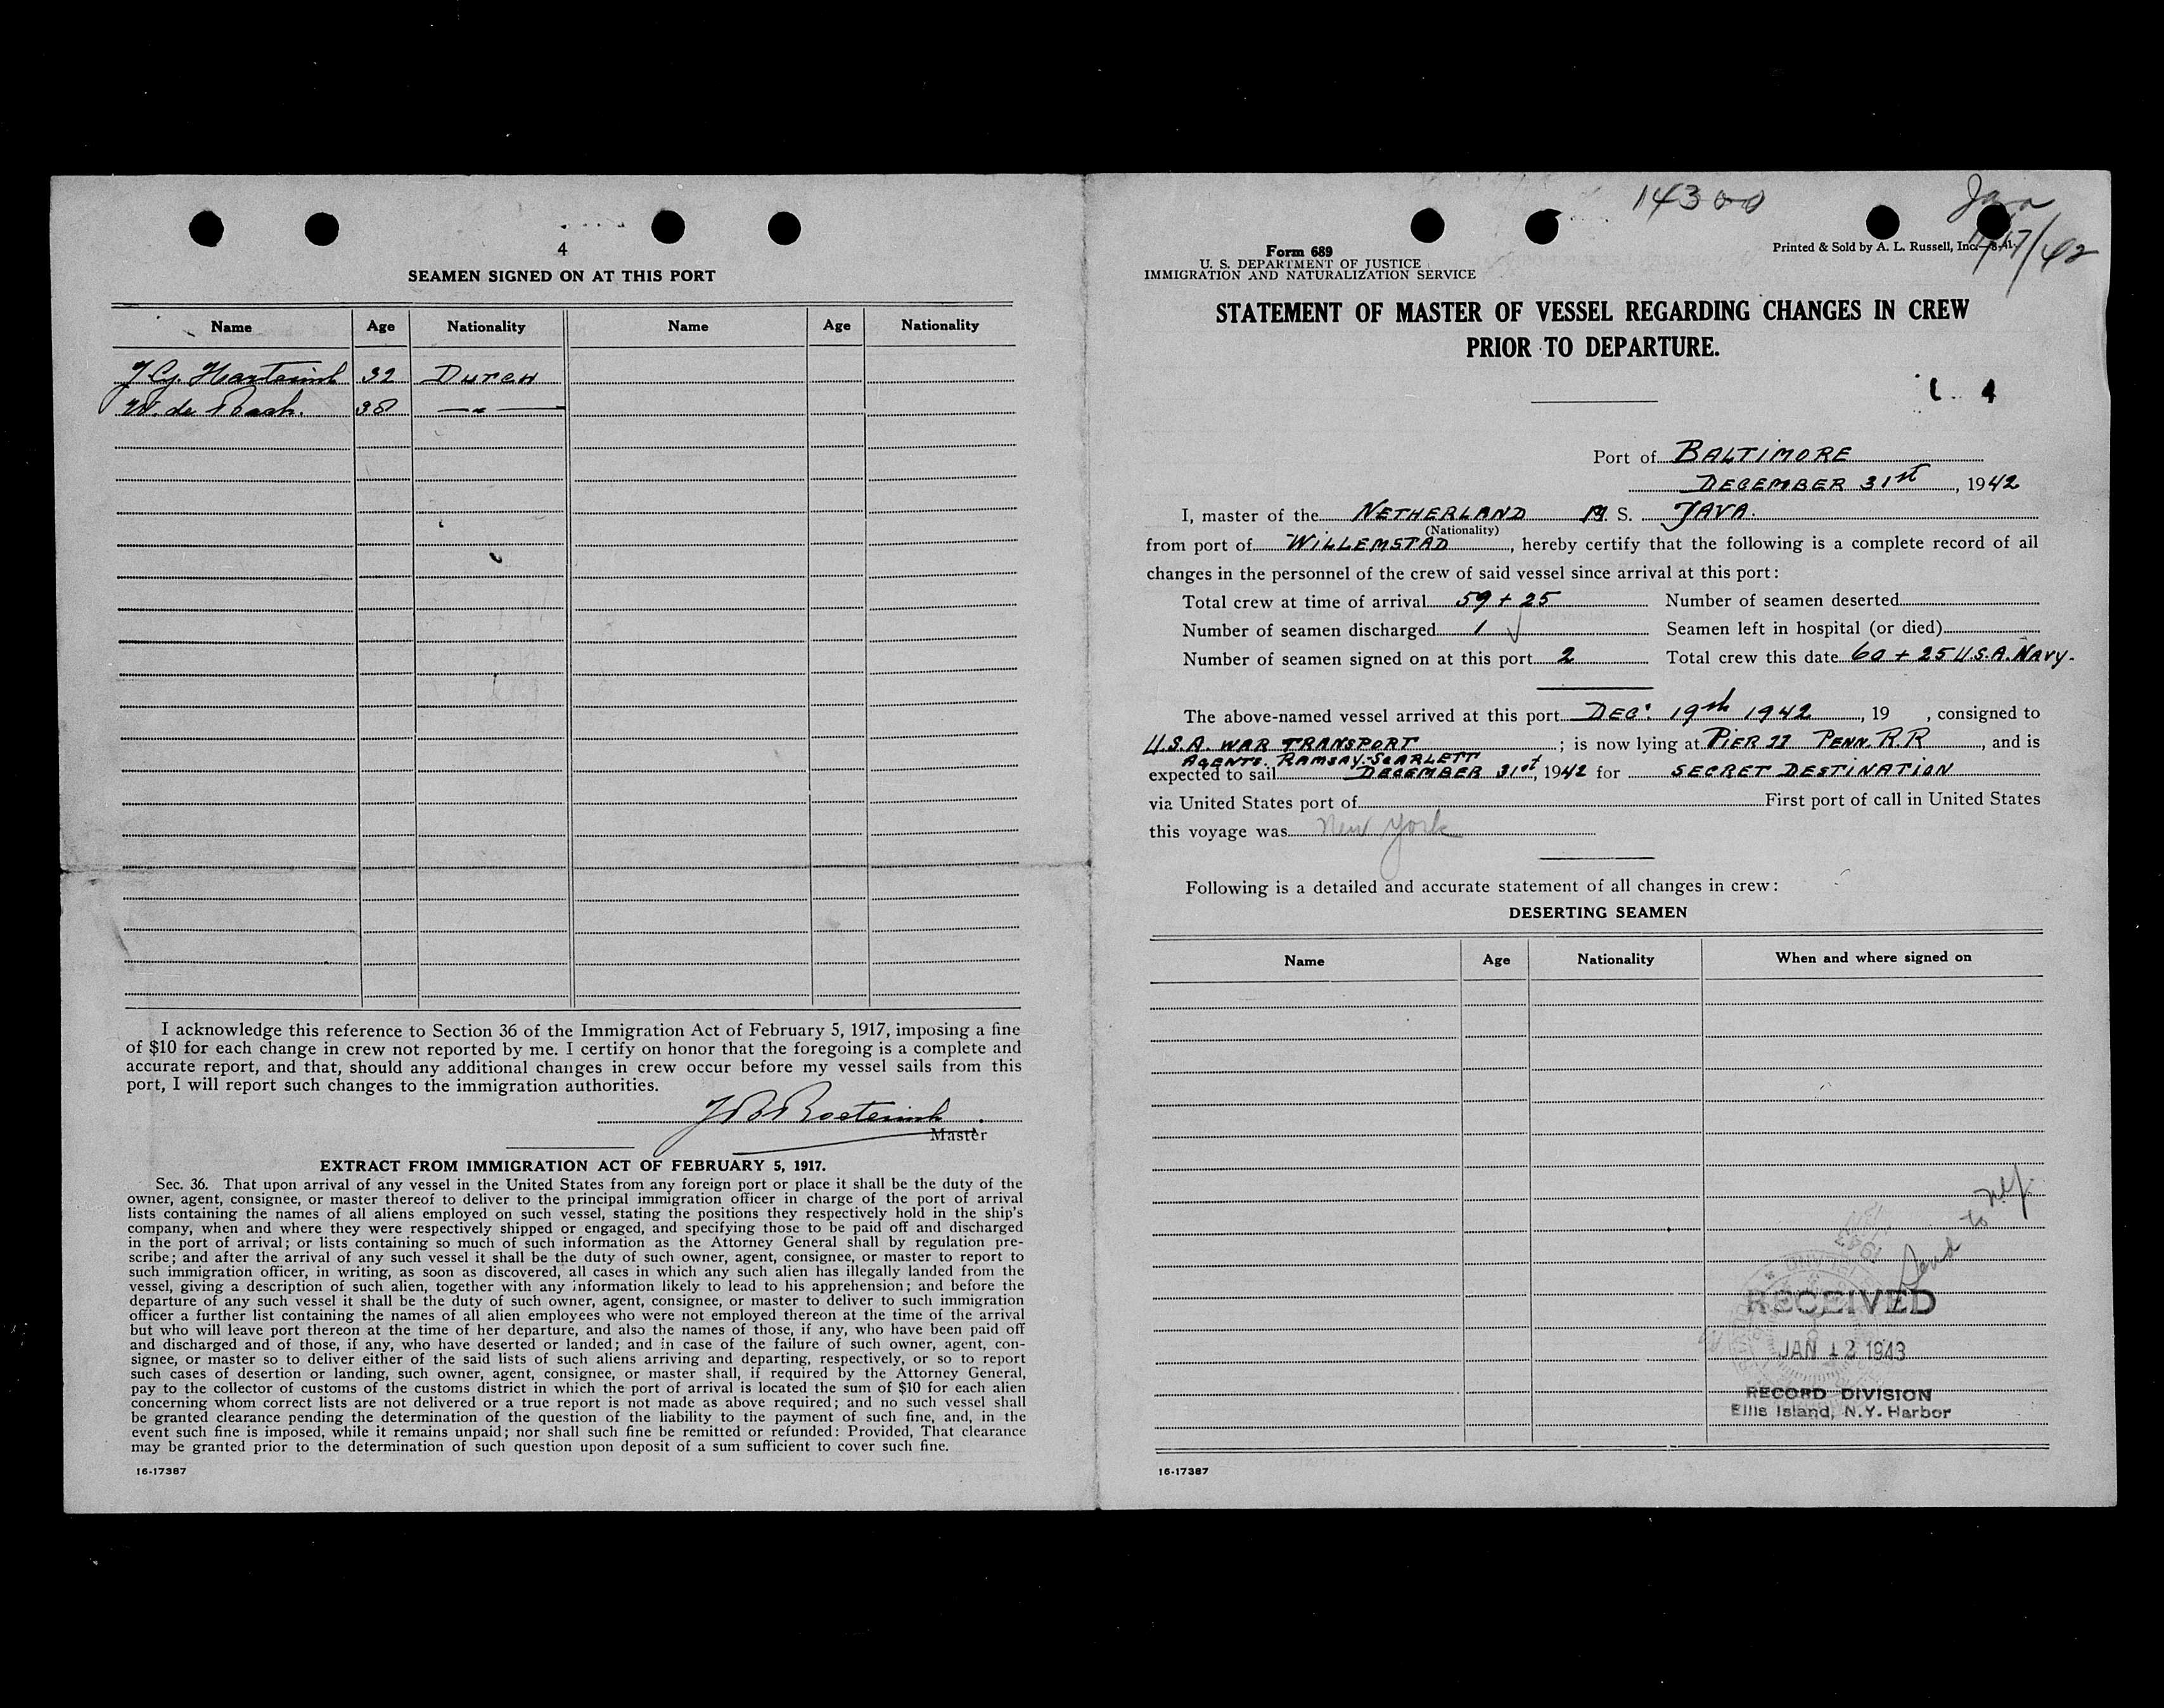 4
SEAMEN SIGNED ON AT THIS PORT
Name Age Nationality Name Age Nationality
32 DUTCH
W. de 38 —"—
I acknowledge this reference to Section 36 of the Immigration Act of February 5, 1917, imposing a fine
of $10 for each change in crew not reported by me. I certify on honor that the foregoing is a complete and
accurate report, and that, should any additional changes in crew occur before my vessel sails from this
port, I will report such changes to the immigration authorities.
Master
EXTRACT FROM IMMIGRATION ACT OF FEBRUARY 5, 1917.
Sec. 36. That upon arrival of any vessel in the United States from any foreign port or place it shall be the duty of the
owner, agent, consignee, or master thereof to deliver to the principal immigration officer in charge of the port of arrival
lists containing the names of all aliens employed on such vessel, stating the positions they respectively hold in the ship's
company, when and where they were respectively shipped or engaged, and specifying those to be paid off and discharged
in the port of arrival; or lists containing so much of such information as the Attorney General shall by regulation pre-
scribe; and after the arrival of any such vessel it shall be the duty of such owner, agent, consignee, or master to report to
such immigration officer, in writing, as soon as discovered, all cases in which any such alien has illegally landed from the
vessel, giving a description of such alien, together with any information likely to lead to his apprehension; and before the
departure of any such vessel it shall be the duty of such owner, agent, consignee, or master to deliver to such immigration
officer a further list containing the names of all alien employees who were not employed thereon at the time of the arrival
but who will leave port thereon at the time of her departure, and also the names of those, if any, who have been paid off
and discharged and of those, if any, who have deserted or landed; and in case of the failure of such owner, agent, con-
signee, or master so to deliver either of the said lists of such aliens arriving and departing, respectively, or so to report
such cases of desertion or landing, such owner, agent, consignee, or master shall, if required by the Attorney General,
pay to the collector of customs of the customs district in which the port of arrival is located the sum of $10 for each alien
concerning whom correct lists are not delivered or a true report is not made as above required; and no such vessel shall
be granted clearance pending the determination of the question of the liability to the payment of such fine, and, in the
event such fine is imposed, while it remains unpaid; nor shall such fine be remitted or refunded: Provided, That clearance
may be granted prior to the determination of such question upon deposit of a sum sufficient to cover such fine.
16-17387
14300
Java
Form 689
U. S. DEPARTMENT OF JUSTICE
IMMIGRATION AND NATURALIZATION SERVICE
Printed & Sold by A. L. Russell, Inc.—8-41-
STATEMENT OF MASTER OF VESSEL REGARDING CHANGES IN CREW
PRIOR TO DEPARTURE.
Port of BALTIMORE
DECEMBER 31st, 1942
I, master of the NETHERLAND M. S. JAVA.
(Nationality)
from port of WILLEMSTAD, hereby certify that the following is a complete record of all
changes in the personnel of the crew of said vessel since arrival at this port:
Total crew at time of arrival 59 + 25 Number of seamen deserted
Number of seamen discharged 1 ✓ Seamen left in hospital (or died)
Number of seamen signed on at this port 2 Total crew this date 60 + 25 U.S.A. NAVY.
The above-named vessel arrived at this port DEC. 19th 1942, 19 , consigned to
U.S.A. WAR TRANSPORT; is now lying at PIER 11 PENN. R.R, and is
AGENTS. RAMSAY-SCARLETT
expected to sail DECEMBER 31st, 1942 for SECRET DESTINATION
via United States port of First port of call in United States
this voyage was New York
Following is a detailed and accurate statement of all changes in crew:
DESERTING SEAMEN
Name Age Nationality When and where signed on
Send to N.Y.
1943
RECEIVED
JAN 12 1943
RECORD DIVISION
Ellis Island, N.Y. Harbor
16-17387